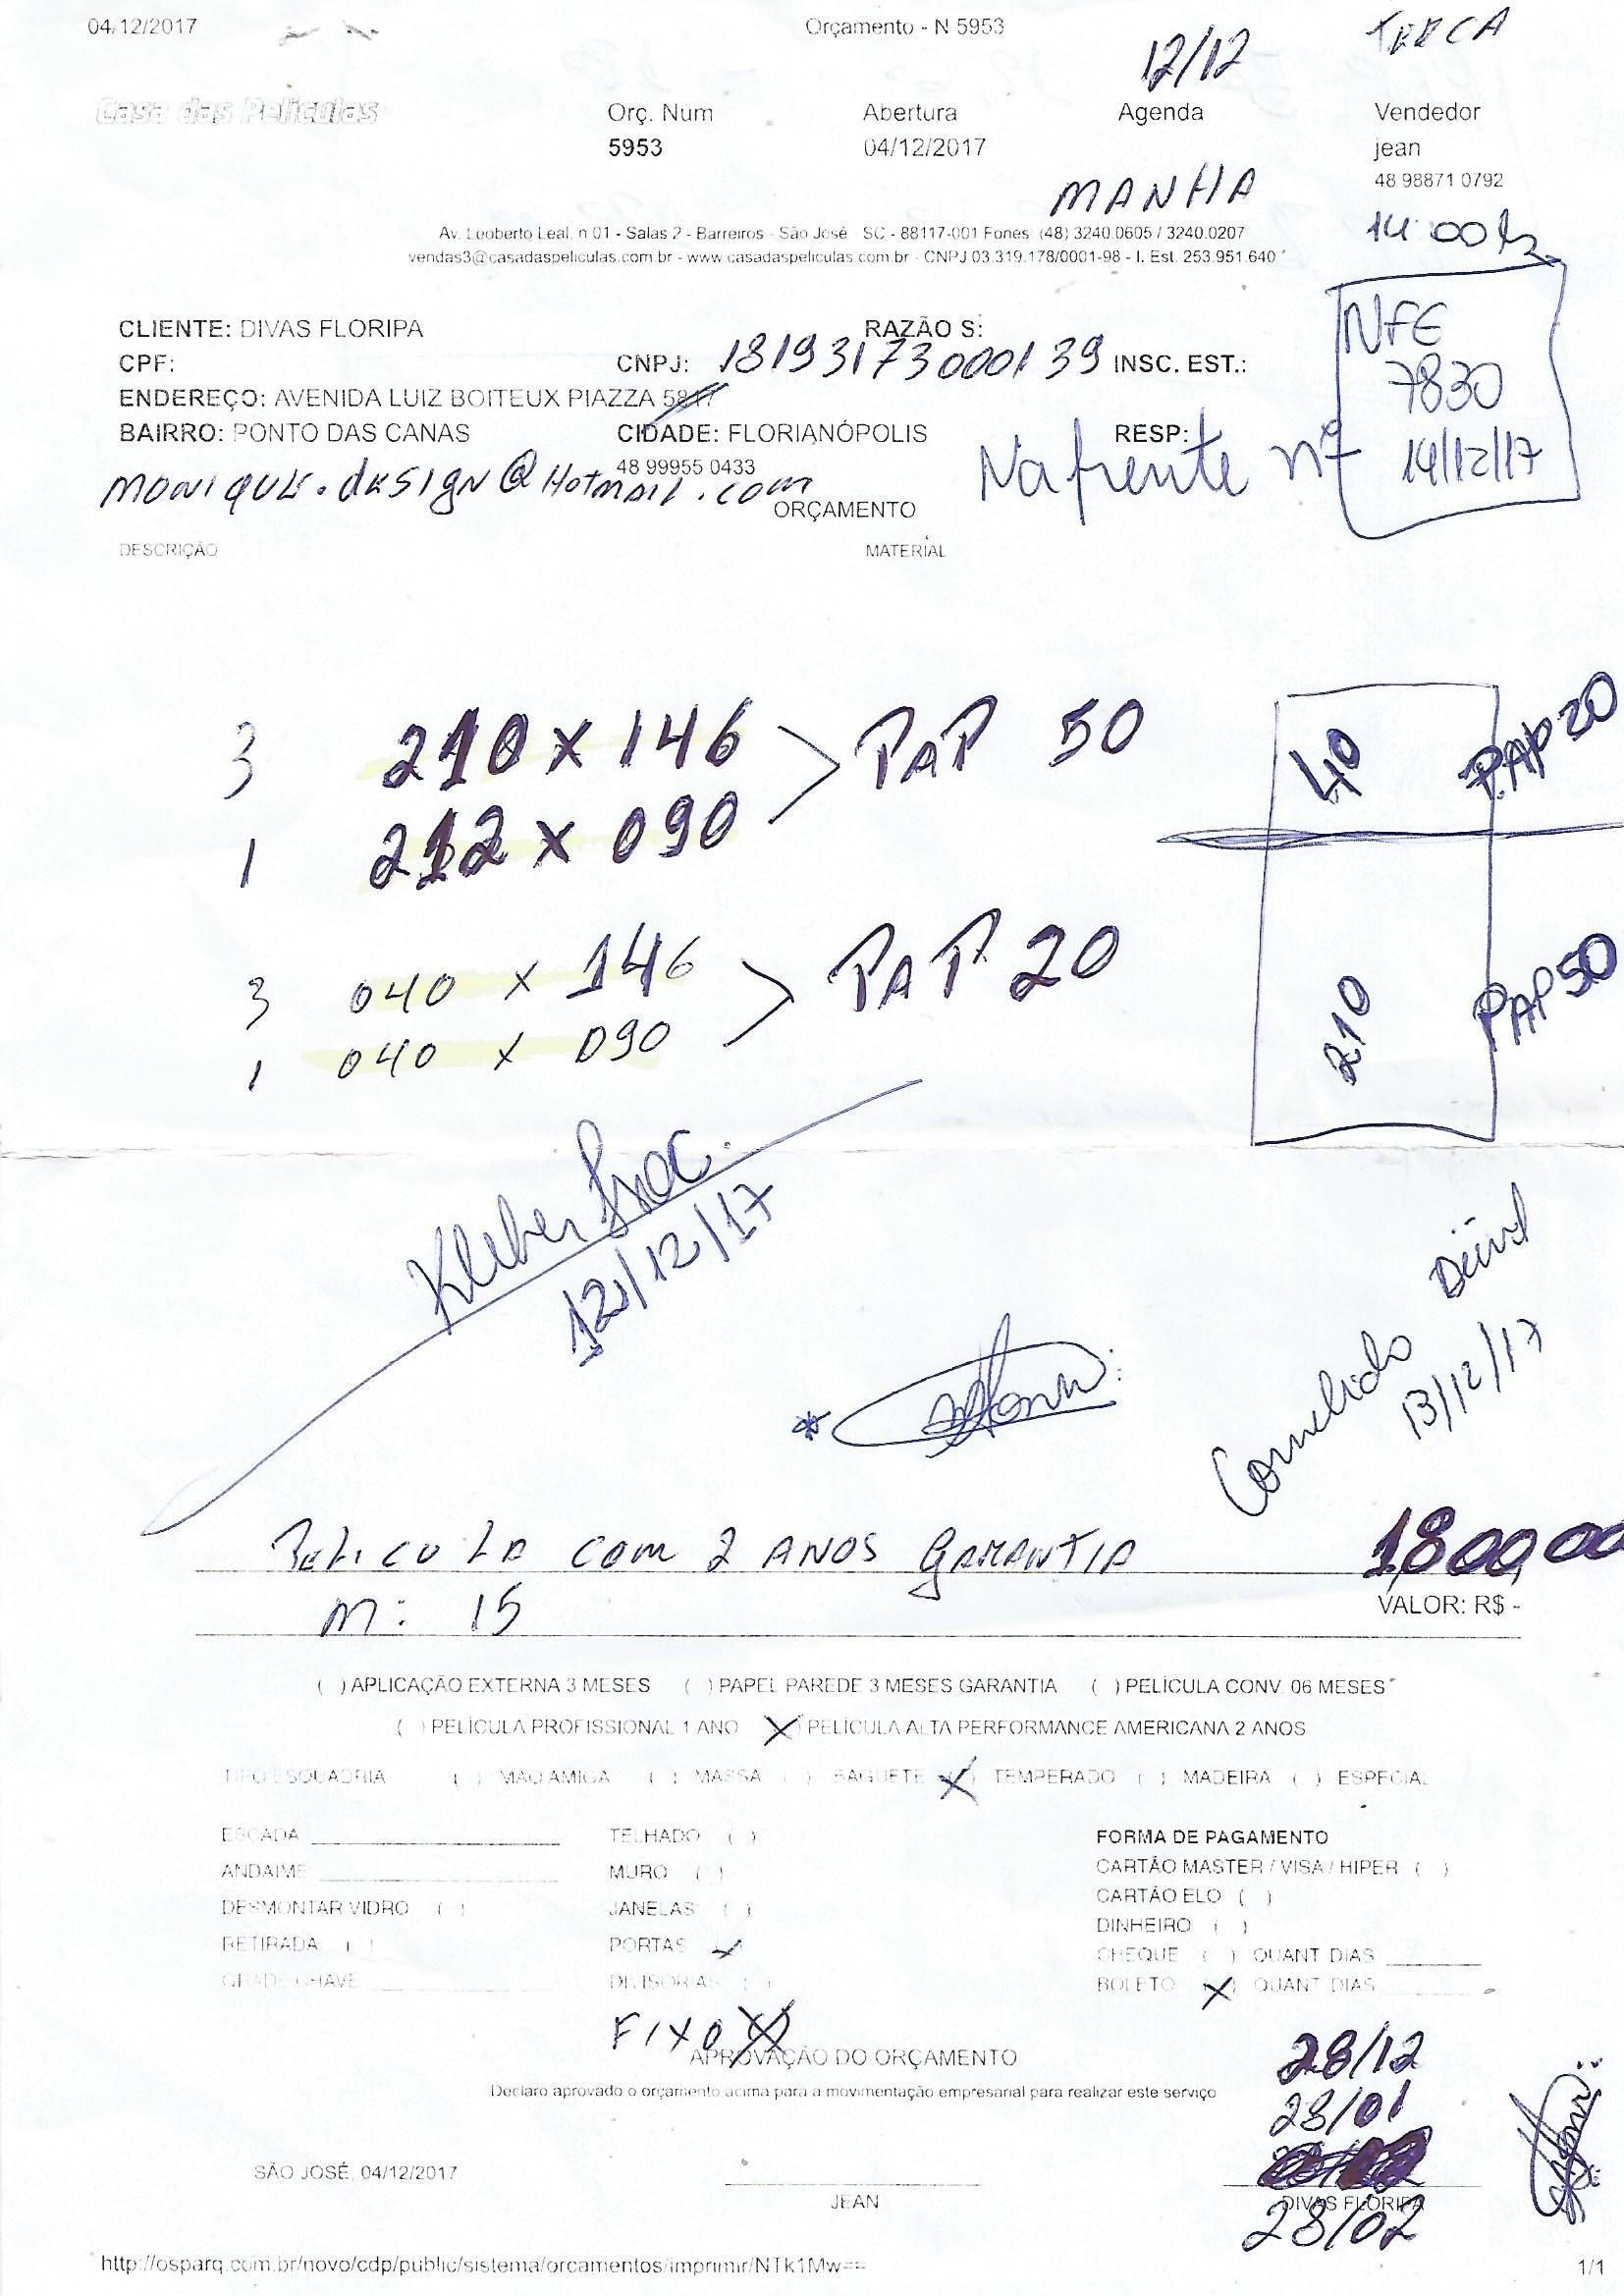 04/12/2017 Orçamento - N 5953
12/12 TERCA
Casa das Películas Orç. Num Abertura Agenda Vendedor
5953 04/12/2017 jean
MANHA 48 98871 0792
Av. Leoberto Leal, n 01 - Salas 2 - Barreiros - São José SC - 88117-001 Fones (48) 3240.0605 / 3240.0207
14:00h
vendas3@casadaspeliculas.com.br - www.casadaspeliculas.com.br - CNPJ 03.319.178/0001-98 - I. Est. 253.951.640
CLIENTE: DIVAS FLORIPA RAZÃO S: NFE
CPF: CNPJ: 18193173000139 INSC. EST.: 7830
ENDEREÇO: AVENIDA LUIZ BOITEUX PIAZZA
BAIRRO: PONTO DAS CANAS CIDADE: FLORIANÓPOLIS RESP: 14/12/17
48 99955 0433
MONIQUE.DESIGN@HOTMAIL.COM Na frente nº
ORÇAMENTO
DESCRIÇÃO MATERIAL
3 210 x 146 > PAP 50 40 PAP 20
1 212 x 090
3 040 x 146 > PAP 20 210 PAP 50
1 040 x 090
Kleber
12/12/17
13/12/17
PELICULA COM 2 ANOS GARANTIA 1.800,00
M: 15 VALOR: R$ -
( ) APLICAÇÃO EXTERNA 3 MESES ( ) PAPEL PAREDE 3 MESES GARANTIA ( ) PELÍCULA CONV. 06 MESES
( ) PELÍCULA PROFISSIONAL 1 ANO (X) PELÍCULA ALTA PERFORMANCE AMERICANA 2 ANOS
TIPO ESQUADRIA ( ) MÃO AMIGA ( ) MASSA ( ) BAGUETE (X) TEMPERADO ( ) MADEIRA ( ) ESPECIAL
ESCADA TELHADO ( ) FORMA DE PAGAMENTO
ANDAIME MURO ( ) CARTÃO MASTER / VISA / HIPER ( )
DESMONTAR VIDRO ( ) JANELAS ( ) CARTÃO ELO ( )
DINHEIRO ( )
RETIRADA ( ) PORTAS CHEQUE ( ) QUANT DIAS
GRADE CHAVE DIVISORIAS ( ) BOLETO (X) QUANT DIAS
FIXO X
APROVAÇÃO DO ORÇAMENTO 28/12
Declaro aprovado o orçamento acima para a movimentação empresarial para realizar este serviço
28/01
SÃO JOSÉ, 04/12/2017
JEAN DIVAS FLORIPA
28/02
http://osparq.com.br/novo/cdp/public/sistema/orcamentos/imprimir/NTk1Mw== 1/1